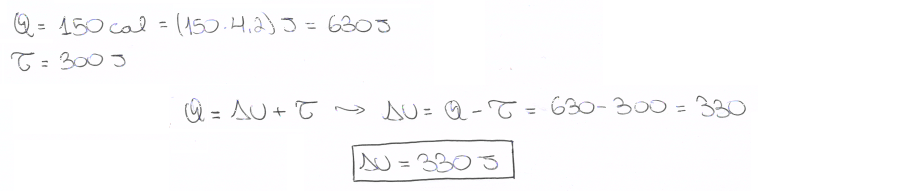 Q = 150 cal = (150.4,2) J = 630 J
τ = 300 J
Q = ΔU + τ ⤳ ΔU = Q - τ = 630 - 300 = 330
ΔU = 330 J